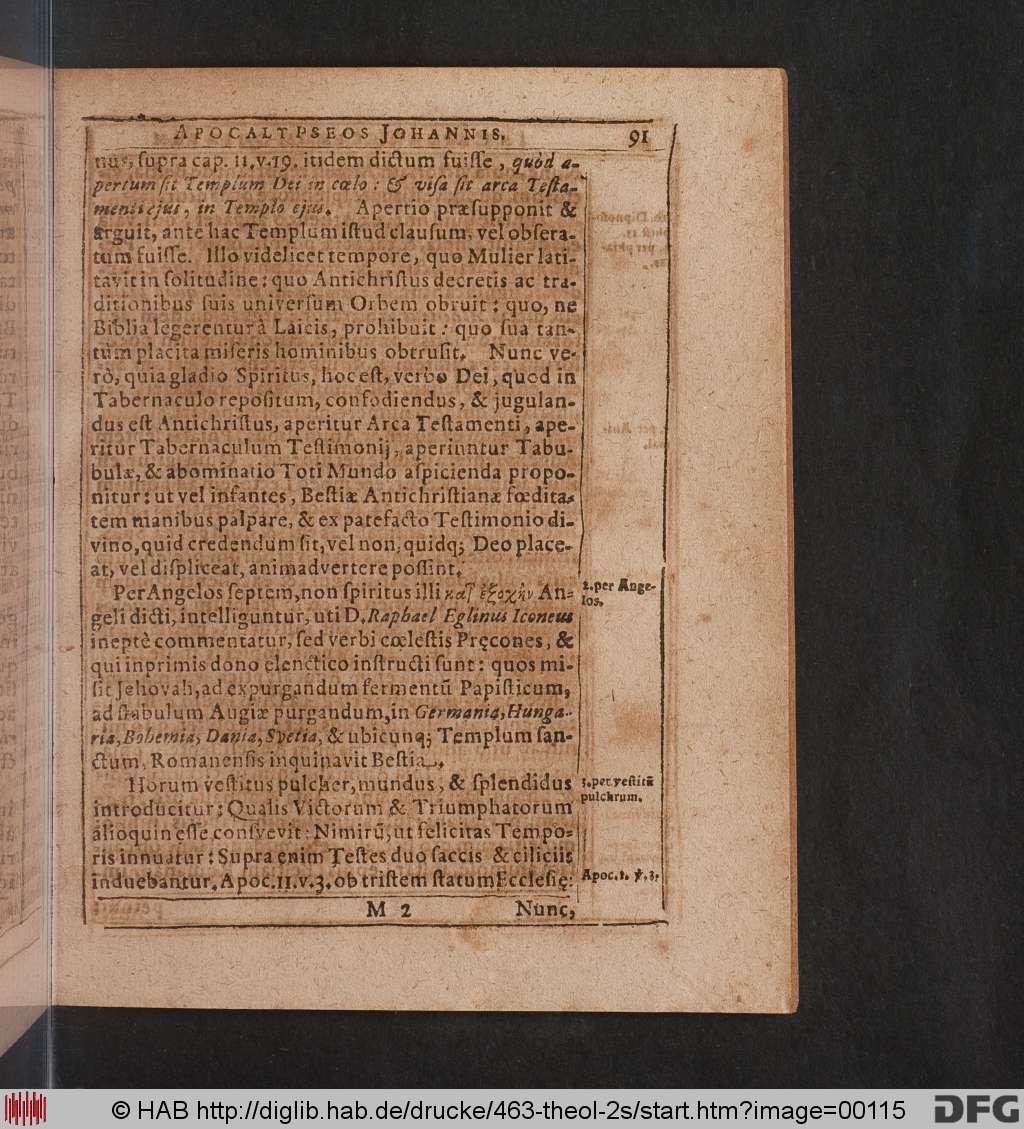 APOCALYPSEOS JOHANNIS. 91
nus, supra cap. 11. v. 19. itidem dictum fuisse, quòd a-
pertum sit Templum Dei in cœlo: & visa sit arca Testa-
menti ejus, in Templo ejus. Apertio præsupponit &
arguit, ante hac Templum istud clausum, vel obsera-
tum fuisse. Illo videlicet tempore, quo Mulier lati-
tavit in solitudine: quo Antichristus decretis ac tra-
ditionibus suis universum Orbem obruit: quo, ne
Biblia legerentur à Laicis, prohibuit: quo sua tan-
tùm placita miseris hominibus obtrusit. Nunc ve-
rò, quia gladio Spiritus, hoc est, verbo Dei, quod in
Tabernaculo repositum, confodiendus, & jugulan-
dus est Antichristus, aperitur Arca Testamenti, ape-
ritur Tabernaculum Testimonij, aperiuntur Tabu-
bulæ, & abominatio Toti Mundo aspicienda propo-
nitur: ut vel infantes, Bestiæ Antichristianæ fœdita-
tem manibus palpare, & ex patefacto Testimonio di-
vino, quid credendum sit, vel non, quidq; Deo place-
at, vel displiceat, animadvertere possint.
Per Angelos septem, non spiritus illi κατ' ἐξοχὴν An-
geli dicti, intelliguntur, uti D. Raphael Eglinus Iconeus
ineptè commentatur, sed verbi cœlestis Pręcones, &
qui inprimis dono elenctico instructi sunt: quos mi-
sit Jehovah, ad expurgandum fermentū Papisticum,
ad stabulum Augiæ purgandum, in Germania, Hunga-
ria, Bohemia, Dania, Svetia, & ubicunq; Templum san-
ctum, Romanensis inquinavit Bestia.
2. per Ange-
los.
Horum vestitus pulcher, mundus, & splendidus
introducitur; Qualis Victorum & Triumphatorum
alioquin esse consvevit: Nimirū, ut felicitas Tempo-
ris innuatur: Supra enim Testes duo saccis & ciliciis
induebantur, Apoc. 11. v. 3. ob tristem statum Ecclesię:
3. per vestitū
pulchrum.
Apoc. 1. ℣. 3.
M 2 Nunc,
© HAB http://diglib.hab.de/drucke/463-theol-2s/start.htm?image=00115 DFG